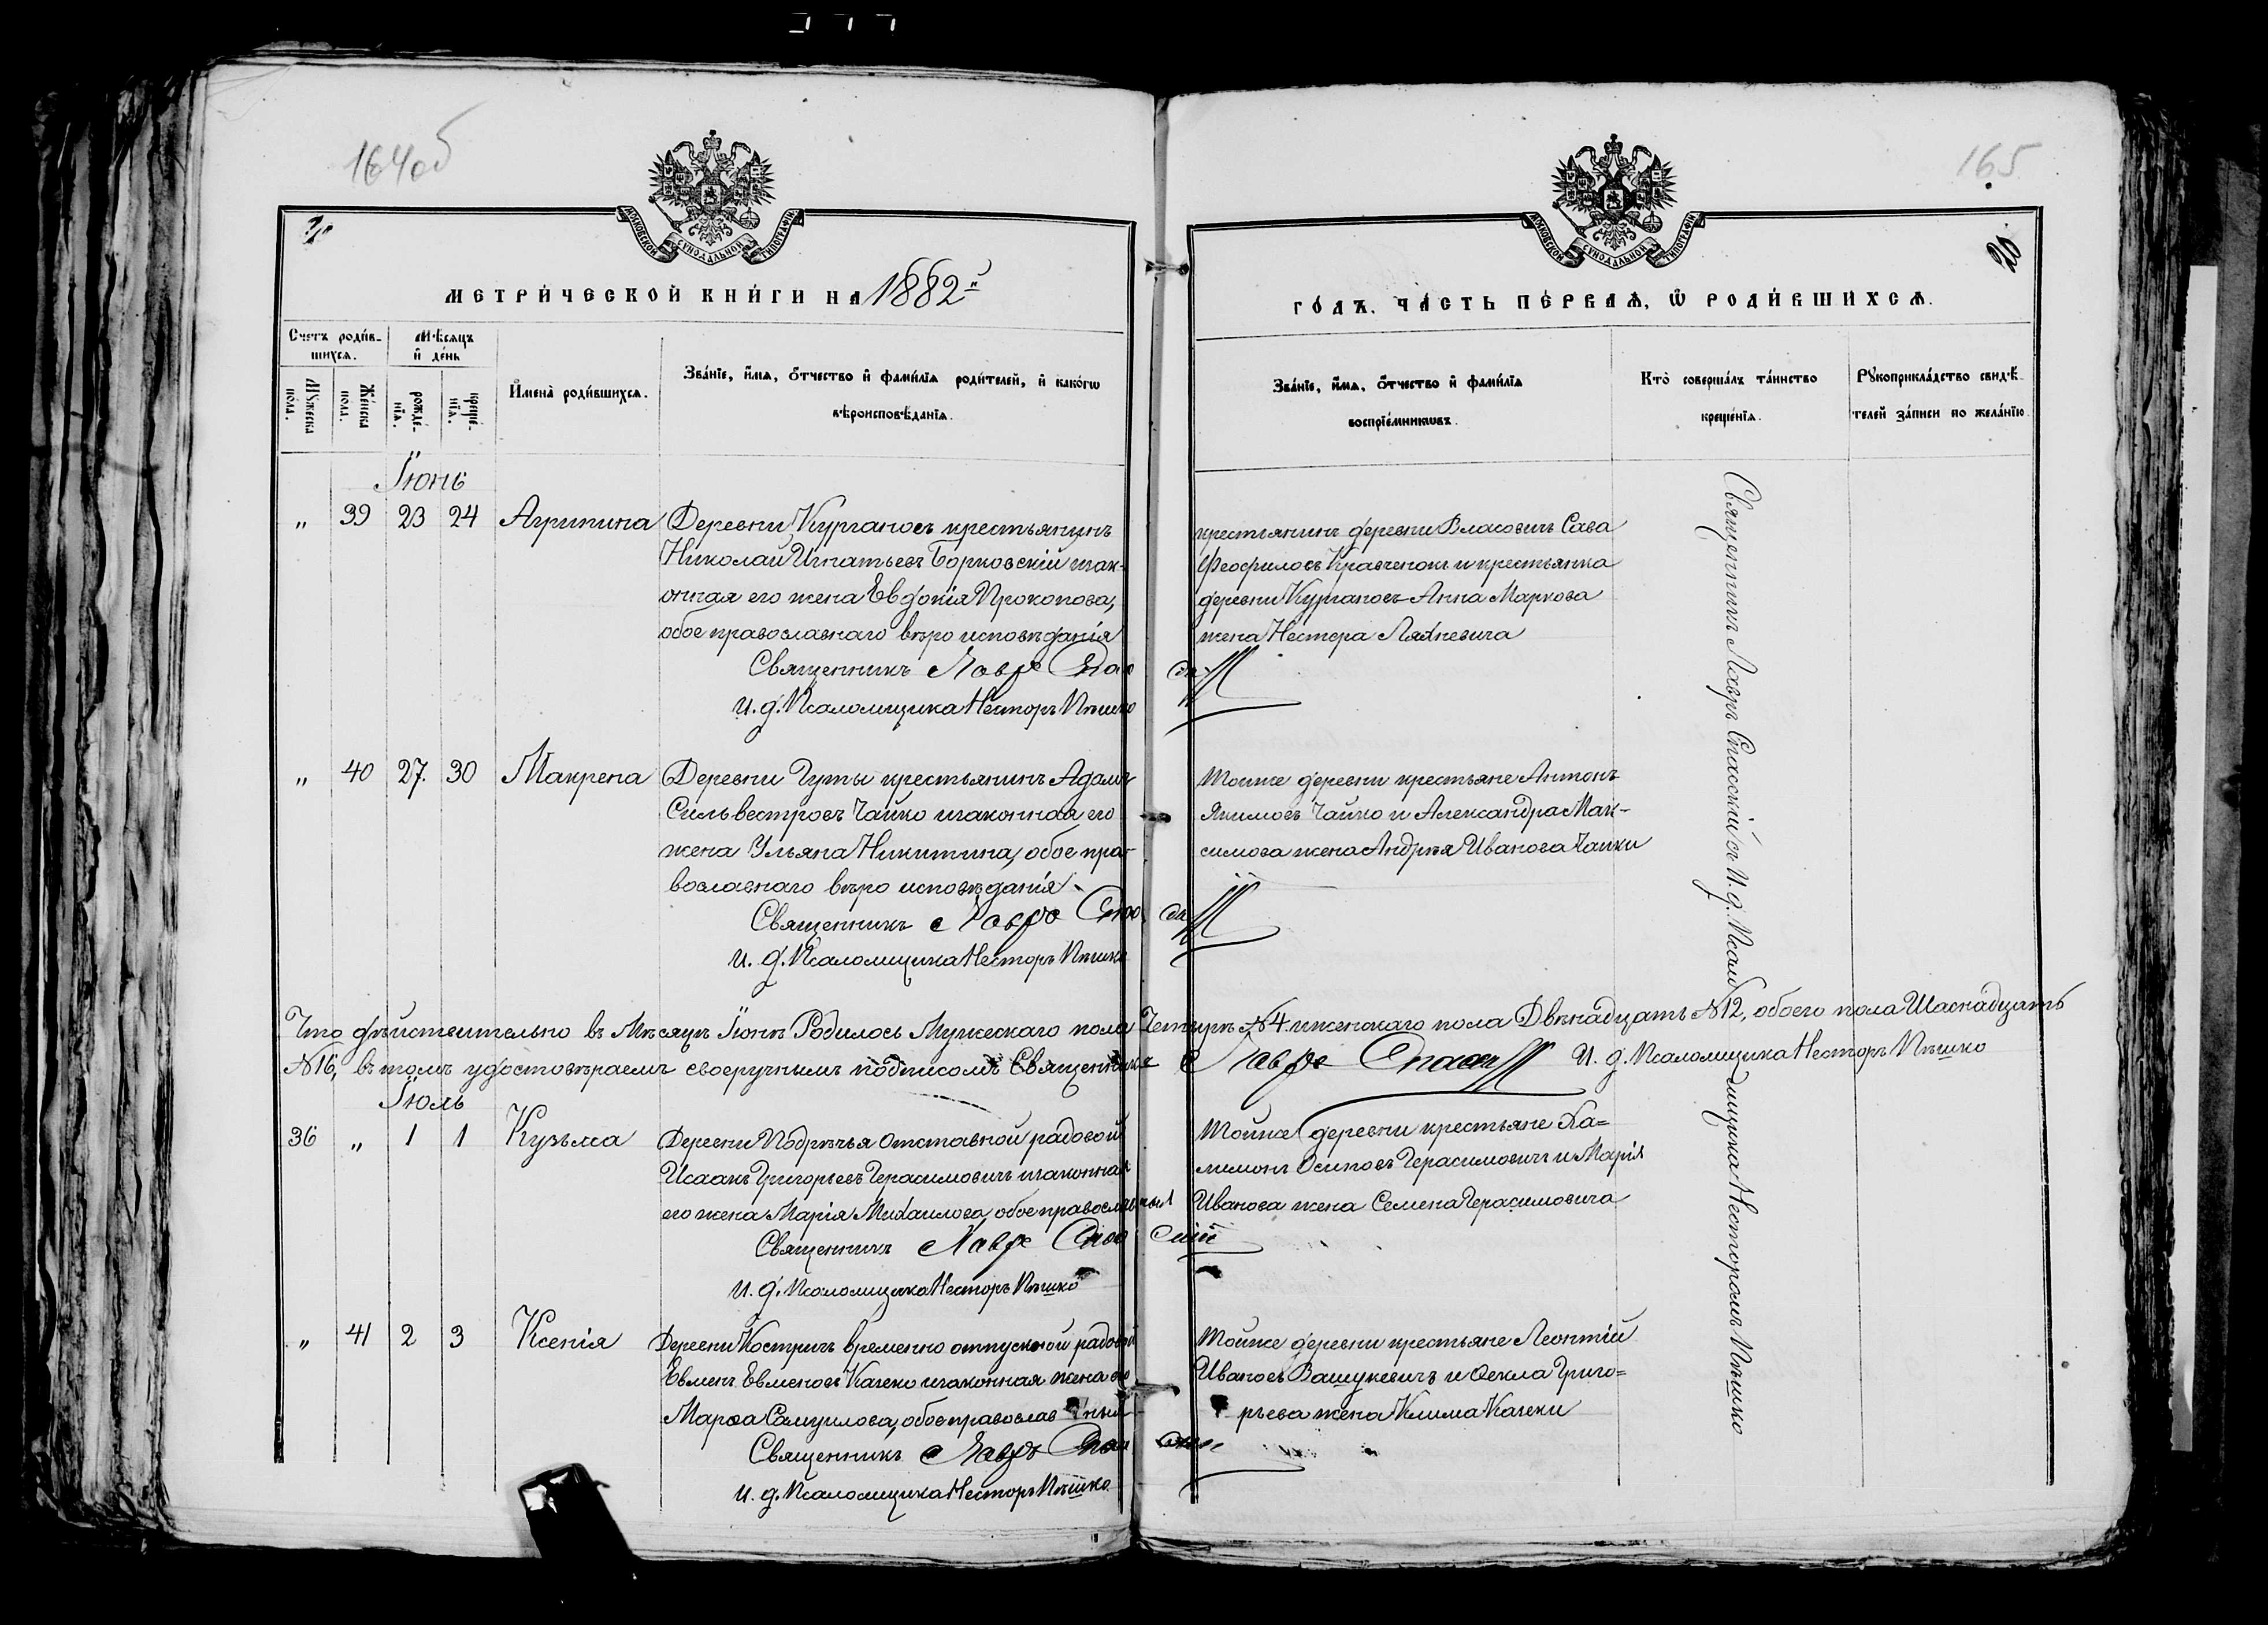 164об
165
МОСКОВСКОЙ СУНОДАЛЬНОЙ ТИПОГРАФІИ
МОСКОВСКОЙ СУНОДАЛЬНОЙ ТИПОГРАФІИ
МЕТРИ́ЧЕСКОЙ КНИ́ГИ НА 1882й
ГО́ДЪ. ЧА́СТЬ ПЕ́РВАѦ, Ѡ РОДИ́ВШИХСѦ.
Счетъ роди́в-
шихся.
Мѣсяцъ
и де́нь
Мꙋжеска
по́ла.
Же́нска
пола.
рожде́-
нїя.
креще́-
нїя.
Имена̀ роди́вшихся.
Зва́нїе, и́мя, о́тчество и фами́лїя роди́телей, и како́гѡ
вѣроисповѣ́данїя.
Зва́нїе, и́мя, о́тчество и фами́лїя
воспрїе́мникѡвъ.
Кто̀ соверша́лъ та́инство
креще́нїя.
Рꙋкоприкла́дство свидѣ́-
телей за́писи по жела́нїю.
Іюнь
„ 39 23 24 Агрипина Деревни Курганов крестьянинъ
Николай Игнатьевъ Борковскій и зак-
онная его жена Евдокія Прокопова,
обое православнаго вѣроисповѣданія
Священникъ Лавръ Спасскій
И. д. Псаломщика Несторъ Пѣшко
крестьянинъ деревни Власовичъ Сава
Феофиловъ Кравченокъ и крестьянка
деревни Курганов Анна Маркова
жена Нестера Ляхневича
„ 40 27. 30 Макрена Деревни Гуты крестьянинъ Адамъ
Сильвестровъ Чайко и законная его
жена Ульяна Никитина, обое пра-
вославнаго вѣроисповѣданія
Священникъ Лавръ Спасскій
И. д. Псаломщика Несторъ Пѣшко
Тойже деревни крестьяне Антонъ
Якимовъ Чайко и Александра Мак-
симова жена Андрѣя Иванова Чайки
Что дѣйствительно въ Мѣсяцѣ Іюнѣ Родилось Мужескаго пола Четырѣ №4 и женскаго пола Двѣнадцать №12, обоего пола Шаснадцать
№16, въ томъ удостовѣраемъ своеручнымъ подписомъ Священникъ Лавръ Спасскій И. д. Псаломщика Несторъ Пѣшко
Іюль
36 „ 1 1 Кузьма Деревни Подрѣчья отставной радовой
Исаакъ Григорьевъ Герасимовичъ и законная
его жена Марія Михаилова, обое православныя
Священникъ Лавръ Спасскій
И. д. Псаломщика Несторъ Пѣшко
Тойже деревни крестьяне Ха-
лимонъ Осиповъ Герасимовичъ и Марія
Иванова жена Семена Герасимовича
„ 41 2 3 Ксенія Деревни Костричъ временно отпускной радовой
Евменъ Евменовъ Качеко и законная жена его
Марѳа Самуилова, обое православный
Священникъ Лавръ Спасскій
И. д. Псаломщика Несторъ Пѣшко
Тойже деревни крестьяне Леонтій
Ивановъ Вашукевичъ и Ѳекла Григо-
рьева жена Клима Качеки
Священникъ Лавръ Спасскій съ И. д. Псаломщика Несторомъ Пѣшко